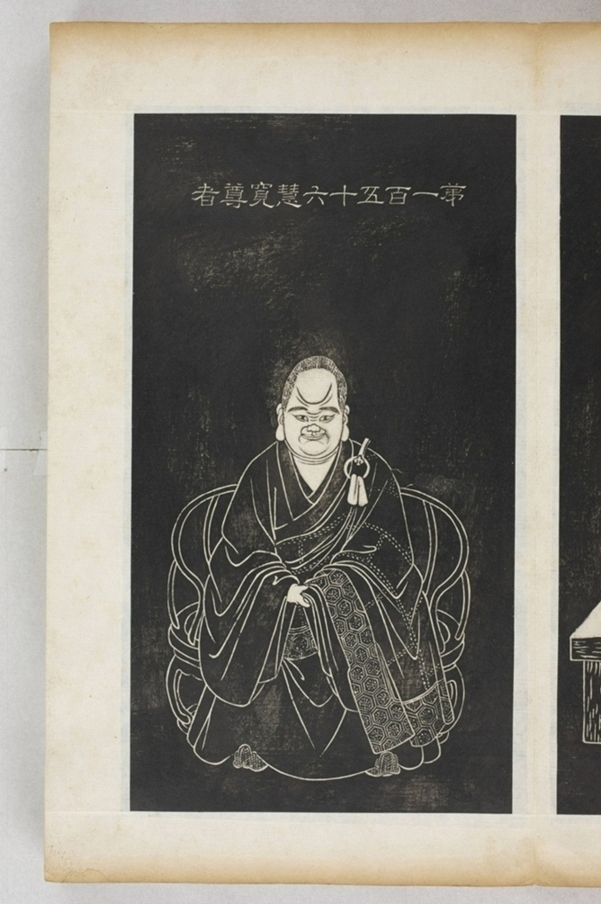 第一百五十六慧寬尊者